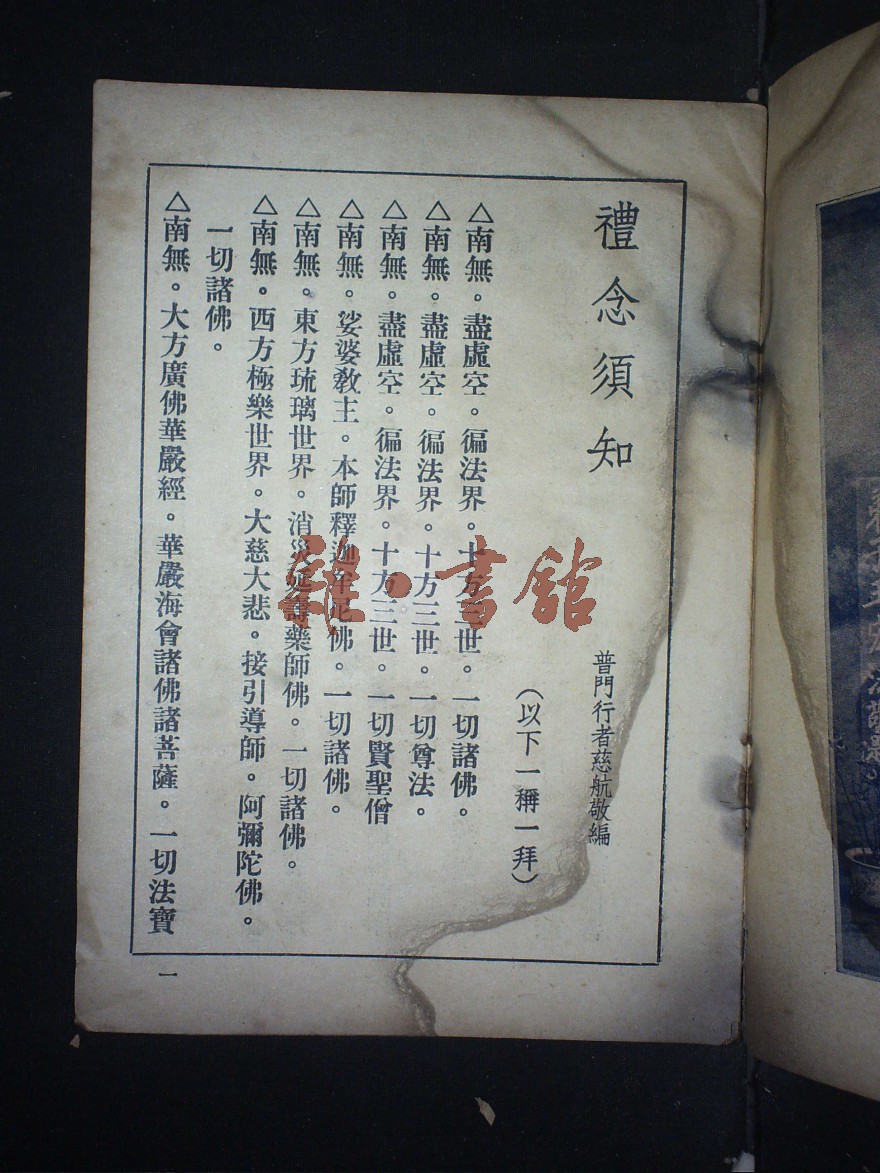 禮念須知
普門行者慈航敬編
（以下一稱一拜）
△南無。盡虛空。徧法界。十方三世。一切諸佛。
△南無。盡虛空。徧法界。十方三世。一切尊法。
△南無。盡虛空。徧法界。十方三世。一切賢聖僧
△南無。娑婆教主。本師釋迦牟尼佛。一切諸佛。
△南無。東方琉璃世界。消災延壽藥師佛。一切諸佛。
△南無。西方極樂世界。大慈大悲。接引導師。阿彌陀佛。
一切諸佛。
△南無。大方廣佛華嚴經。華嚴海會諸佛諸菩薩。一切法寶
一
雜·書館